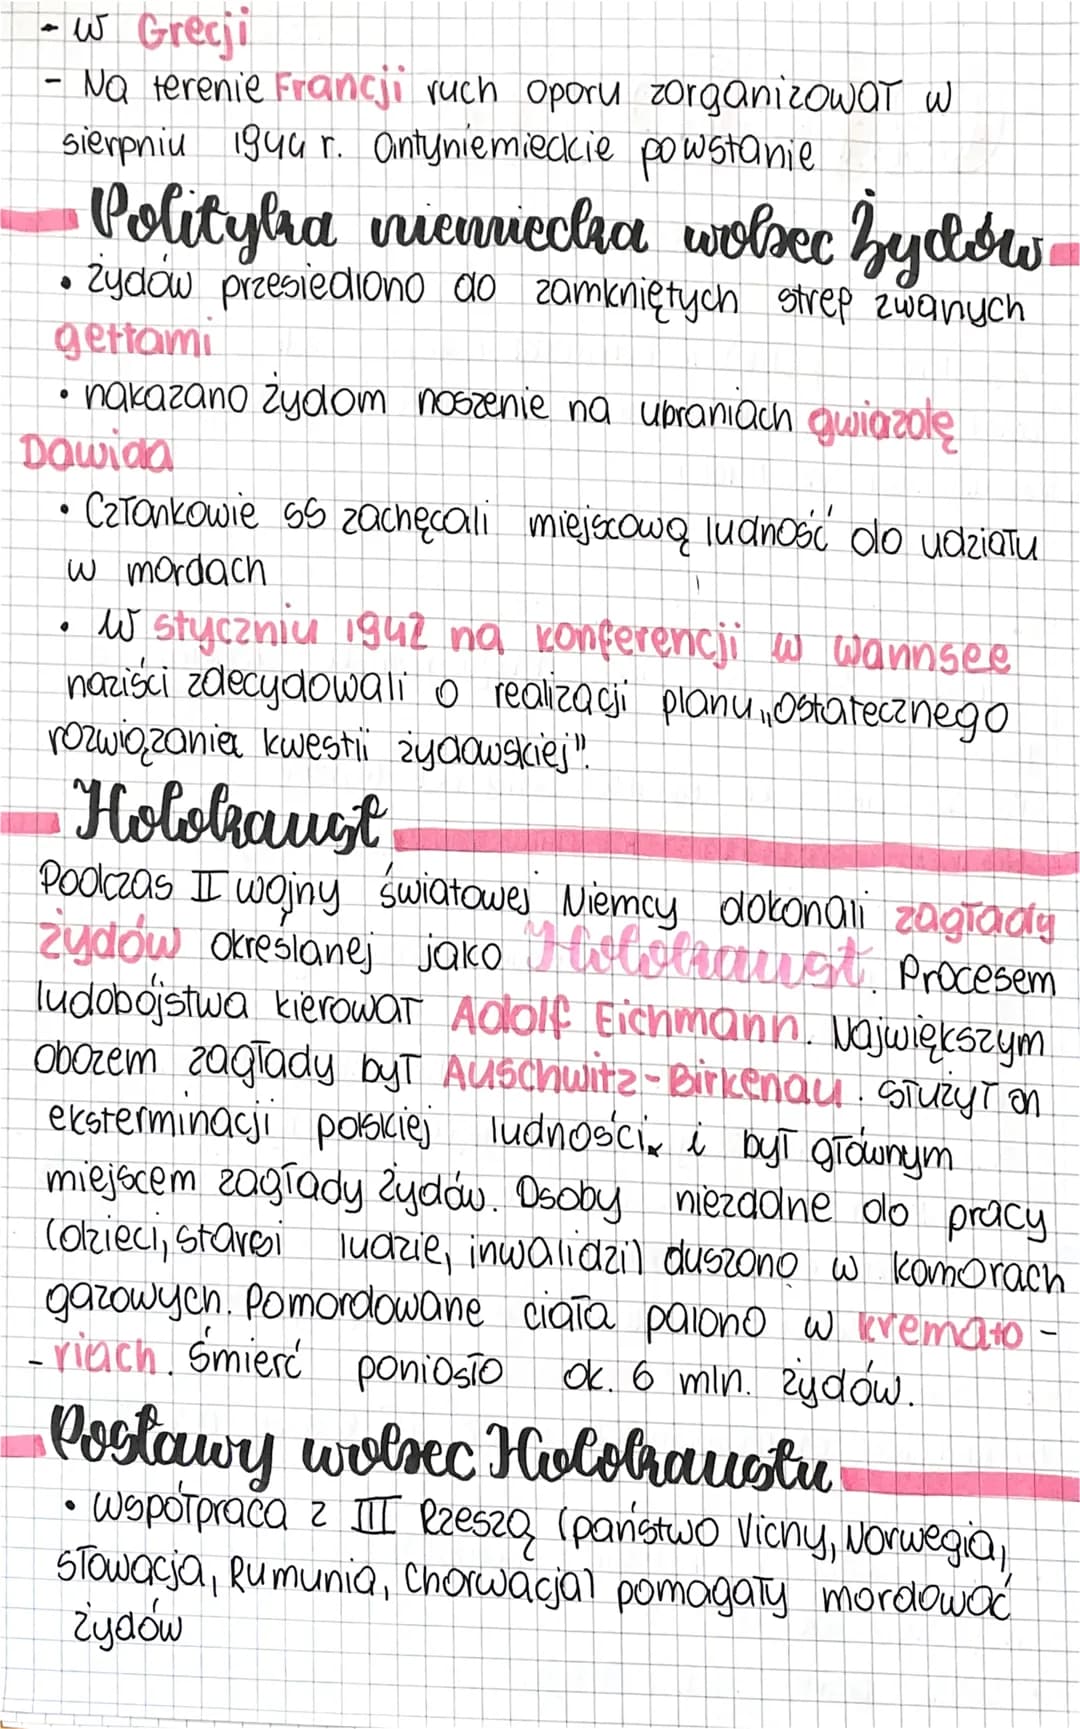 - w Grecji
- Na terenie Francji ruch oporu zorganizował w
sierpniu 1944 r. antyniemieckie powstanie
Polityka niemiecka wobec Żydów
• Żydów przesiedlono do zamkniętych stref zwanych
gettami
• nakazano żydom noszenie na ubraniach gwiazdę
Dawida
• Członkowie SS zachęcali miejscową ludność do udziału
w mordach
• W styczniu 1942 na konferencji w Wannsee
naziści zdecydowali o realizacji planu „Ostatecznego
rozwiązania kwestii żydowskiej".
Holokaust
Podczas II wojny światowej Niemcy dokonali zagłady
żydów określanej jako Holokaust. Procesem
ludobójstwa kierował Adolf Eichmann. Największym
obozem zagłady był Auschwitz-Birkenau. Służył on
eksterminacji polskiej ludności i był głównym
miejscem zagłady Żydów. Osoby niezdolne do pracy
(dzieci, starsi ludzie, inwalidzi) duszono w komorach
gazowych. Pomordowane ciała palono w kremato-
-riach. Śmierć poniosło ok. 6 mln. żydów.
Postawy wobec Holokaustu
• Współpraca z III Rzeszą (państwo Vichy, Norwegia,
Słowacja, Rumunia, Chorwacja) pomagały mordować
żydów